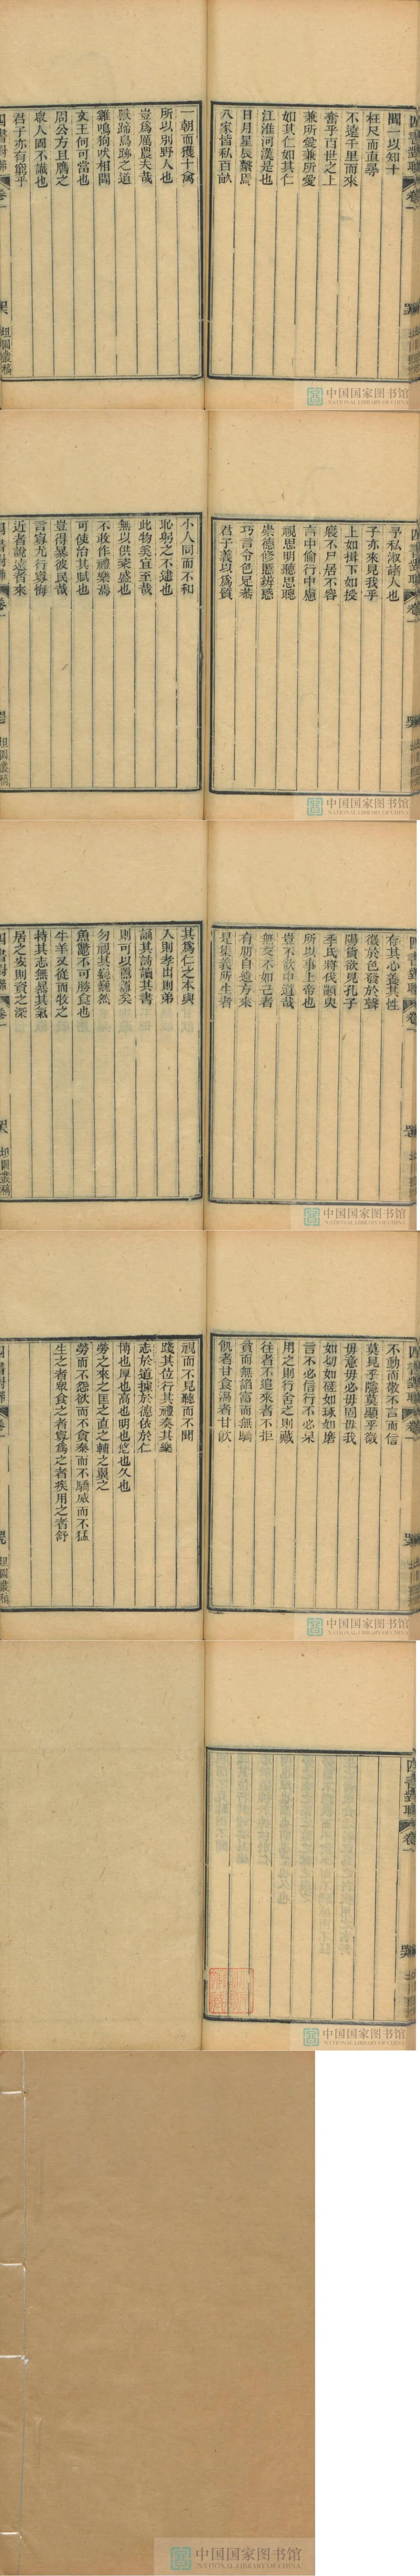 四書對聯 卷一
聞一以知十
枉尺而直尋
不遠千里而來
奮乎百世之上
兼所愛兼所愛
如其仁如其仁
江淮河漢是也
日月星辰繫焉
八家皆私百畝
一朝而獲十禽
所以別野人也
豈爲厲農夫哉
獸蹄鳥跡之道
雞鳴狗吠相聞
文王何可當也
周公方且膺之
眾人固不識也
君子亦有窮乎
四書對聯 卷一
坦園叢稿
中国国家图书馆
NATIONAL LIBRARY OF CHINA
四書對聯 卷一
予私淑諸人也
子亦來見我乎
上如揖下如授
寢不尸居不容
言中倫行中慮
視思明聽思聰
崇德修慝辨惑
巧言令色足恭
君子義以爲質
小人同而不和
恥躬之不逮也
此物奚宜至哉
無以供粢盛也
不敢作禮樂焉
可使治其賦也
豈得暴彼民哉
言寡尤行寡悔
近者說遠者來
四書對聯 卷一
坦園叢稿
中国国家图书馆
NATIONAL LIBRARY OF CHINA
四書對聯 卷一
存其心養其性
徵於色發於聲
陽貨欲見孔子
季氏將伐顓臾
所以事上帝也
豈不欲中道哉
無友不如己者
有朋自遠方來
是集義所生者
其爲仁之本與
入則孝出則弟
誦其詩讀其書
則可以爲善矣
勿視其巍巍然
魚鼈不可勝食也
牛羊又從而牧之
持其志無暴其氣
居之安則資之深
四書對聯 卷一
坦園叢稿
中国国家图书馆
NATIONAL LIBRARY OF CHINA
四書對聯 卷一
不動而敬不言而信
莫見乎隱莫顯乎微
毋意毋必毋固毋我
如切如磋如琢如磨
言不必信行不必果
用之則行舍之則藏
往者不追來者不拒
貧而無諂富而無驕
飢者甘食渴者甘飲
視而不見聽而不聞
踐其位行其禮奏其樂
志於道據於德依於仁
博也厚也高也明也悠也久也
勞之來之匡之直之輔之翼之
勞而不怨欲而不貪泰而不驕威而不猛
生之者眾食之者寡爲之者疾用之者舒
四書對聯 卷一
坦園叢稿
中国国家图书馆
NATIONAL LIBRARY OF CHINA
四書對聯 卷一
中国国家图书馆
NATIONAL LIBRARY OF CHINA
中国国家图书馆
NATIONAL LIBRARY OF CHINA